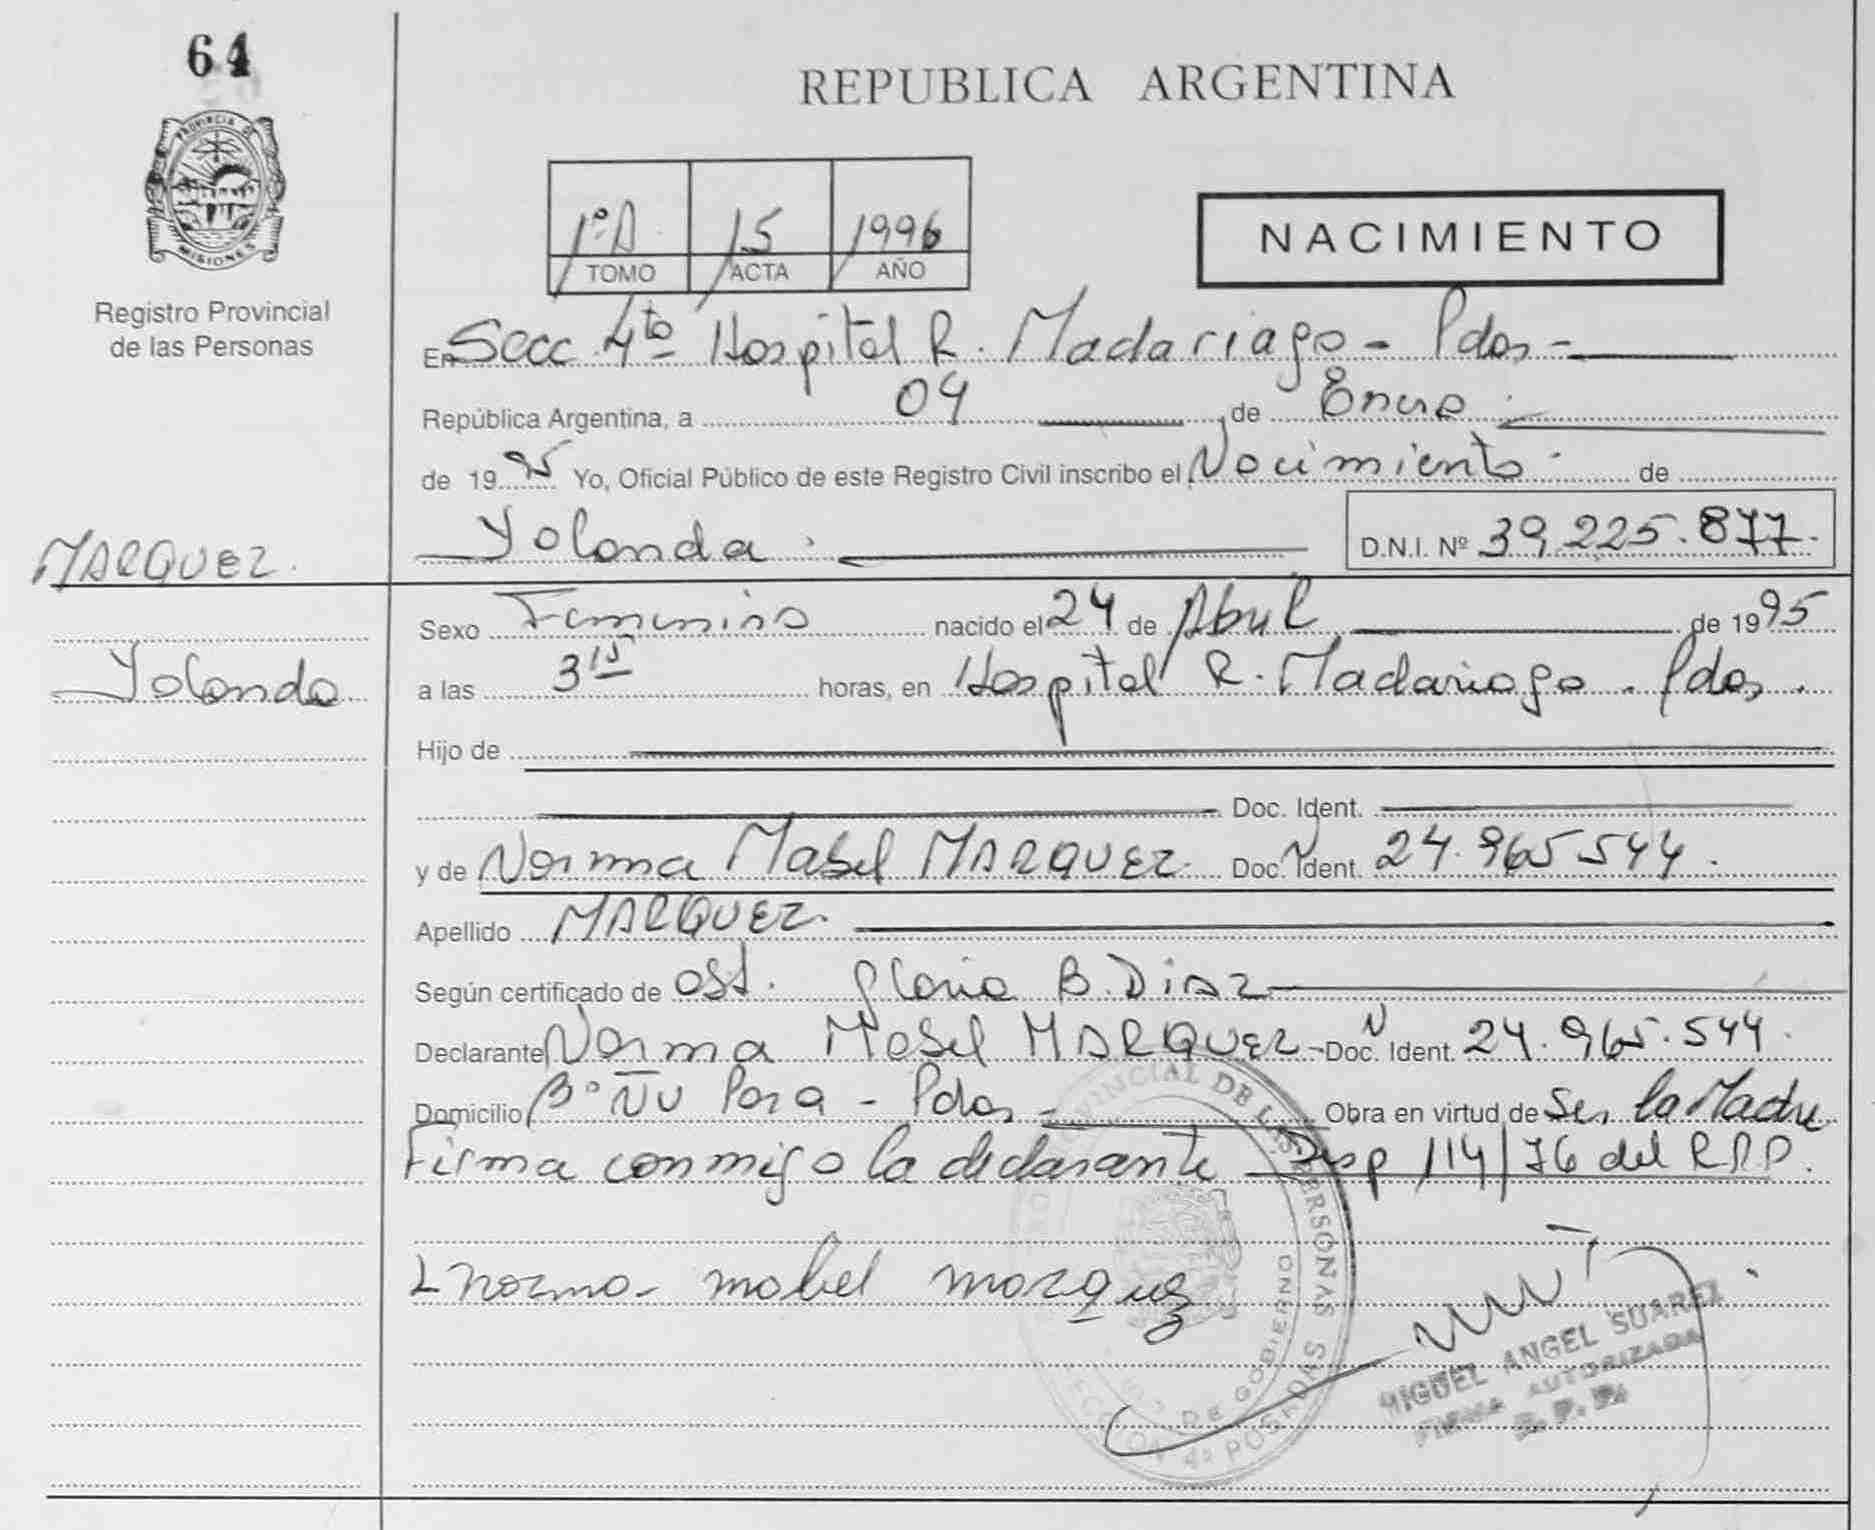 64
PROVINCIA DE
MISIONES
Registro Provincial
de las Personas
REPUBLICA ARGENTINA
1º A 15 1996
TOMO ACTA AÑO
NACIMIENTO
En Secc. 4ta Hospital R. Madariaga - Pdas -
República Argentina, a 04 de Enero
de 1995 Yo, Oficial Público de este Registro Civil inscribo el Nacimiento de
Yolanda D.N.I. Nº 39.225.877.
MARQUEZ.
Yolanda
Sexo Femenino nacido el 24 de Abril de 1995
a las 3 15 horas, en Hospital R. Madariaga - Pdas.
Hijo de
Doc. Ident.
y de Norma Mabel MARQUEZ. Doc. Ident. 24.965.544.
Apellido MARQUEZ.
Según certificado de Ost. Gloria B. Diaz
Declarante Norma Mabel MARQUEZ - Doc. Ident. 24.965.544.
Domicilio Bº Ñu Pora - Pdas - Obra en virtud de Ser la Madre
Firma conmigo la declarante Disp 114/76 del R.P.P.
norma mabel marquez
PROVINCIAL DE LAS PERSONAS
DE GOBIERNO
SECCION 4ª POSADAS
MIGUEL ANGEL SUAREZ
FIRMA AUTORIZADA
R. P. P.